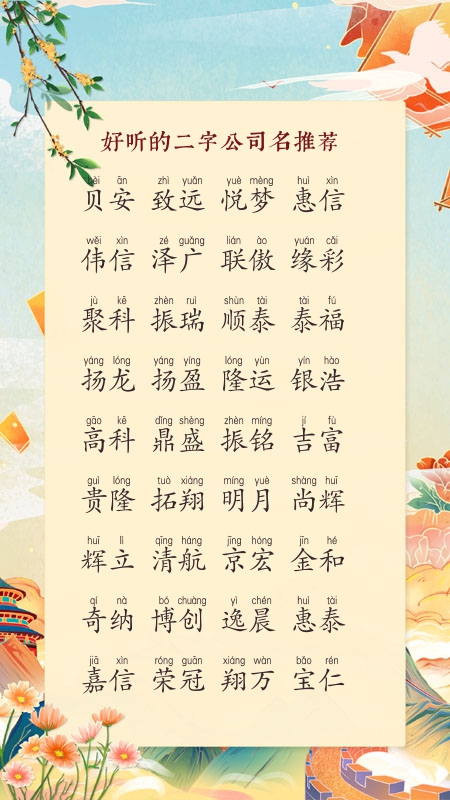 好听的二字公司名推荐
bèi ān zhì yuǎn yuè mèng huì xìn
贝安 致远 悦梦 惠信
wěi xìn zé guǎng lián ào yuán cǎi
伟信 泽广 联傲 缘彩
jù kē zhèn ruì shùn tài tài fú
聚科 振瑞 顺泰 泰福
yáng lóng yáng yíng lóng yùn yín hào
扬龙 扬盈 隆运 银浩
gāo kē dǐng shèng zhèn míng jí fù
高科 鼎盛 振铭 吉富
guì lóng tuò xiáng míng yuè shàng huī
贵隆 拓翔 明月 尚辉
huī lì qīng háng jīng hóng jīn hé
辉立 清航 京宏 金和
qí nà bó chuàng yì chén huì tài
奇纳 博创 逸晨 惠泰
jiā xìn róng guān xiáng wàn bǎo rén
嘉信 荣冠 翔万 宝仁